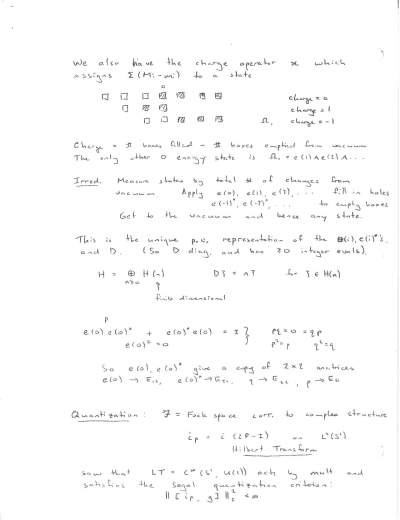 We also have the charge operator x which
assigns Σ(Mi - mi) to a state
0
charge = 0
charge = 1
Ω, charge = -1
Charge = # boxes filled - # boxes emptied from vacuum
The only other 0 energy state is Ω, = e(1) ∧ e(2) ∧ ...
Irred. Measure states by total # of changes from
vacuum Apply e(0), e(1), e(2), ... fill in holes
e(-1)*, e(-2)*, ... to empty boxes
Get to the vacuum and hence any state.
This is the unique p.e. representation of the e(i), e(i)*'s,
and D. (So D diag. and has ≥0 integer evals).
H = ⊕ H(n) Dξ = nξ for ξ ∈ H(n)
n≥0
finite dimensional
p
e(0) e(0)* + e(0)* e(0) = I } pq = 0 = qp
e(0)² = 0 p² = p q² = q
So e(0), e(0)* give a copy of 2×2 matrices
e(0) → E₁₂, e(0)* → E₂₁, q → E₂₂, p → E₁₁
Quantization: F = Fock space corr. to complex structure
i_P = i(2P - I) on L²(S¹)
Hilbert Transform
saw that LT = C^∞(S¹, U(1)) acts by mult and
satisfies the Segal quantization criterion:
‖[i_P, g]‖₂² < ∞